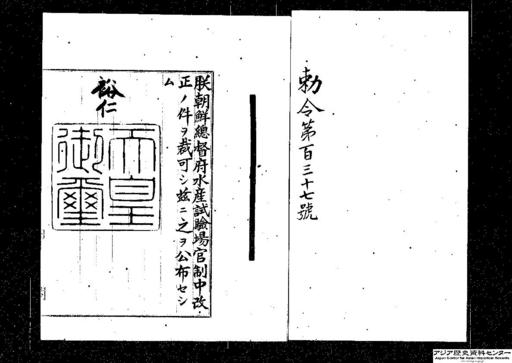 勅令第百三十七號
朕朝鮮總督府水産試驗場官制中改
正ノ件ヲ裁可シ茲ニ之ヲ公布セシ
ム
裕仁
天皇
御璽
アジア歴史資料センター
Japan Center for Asian Historical Records